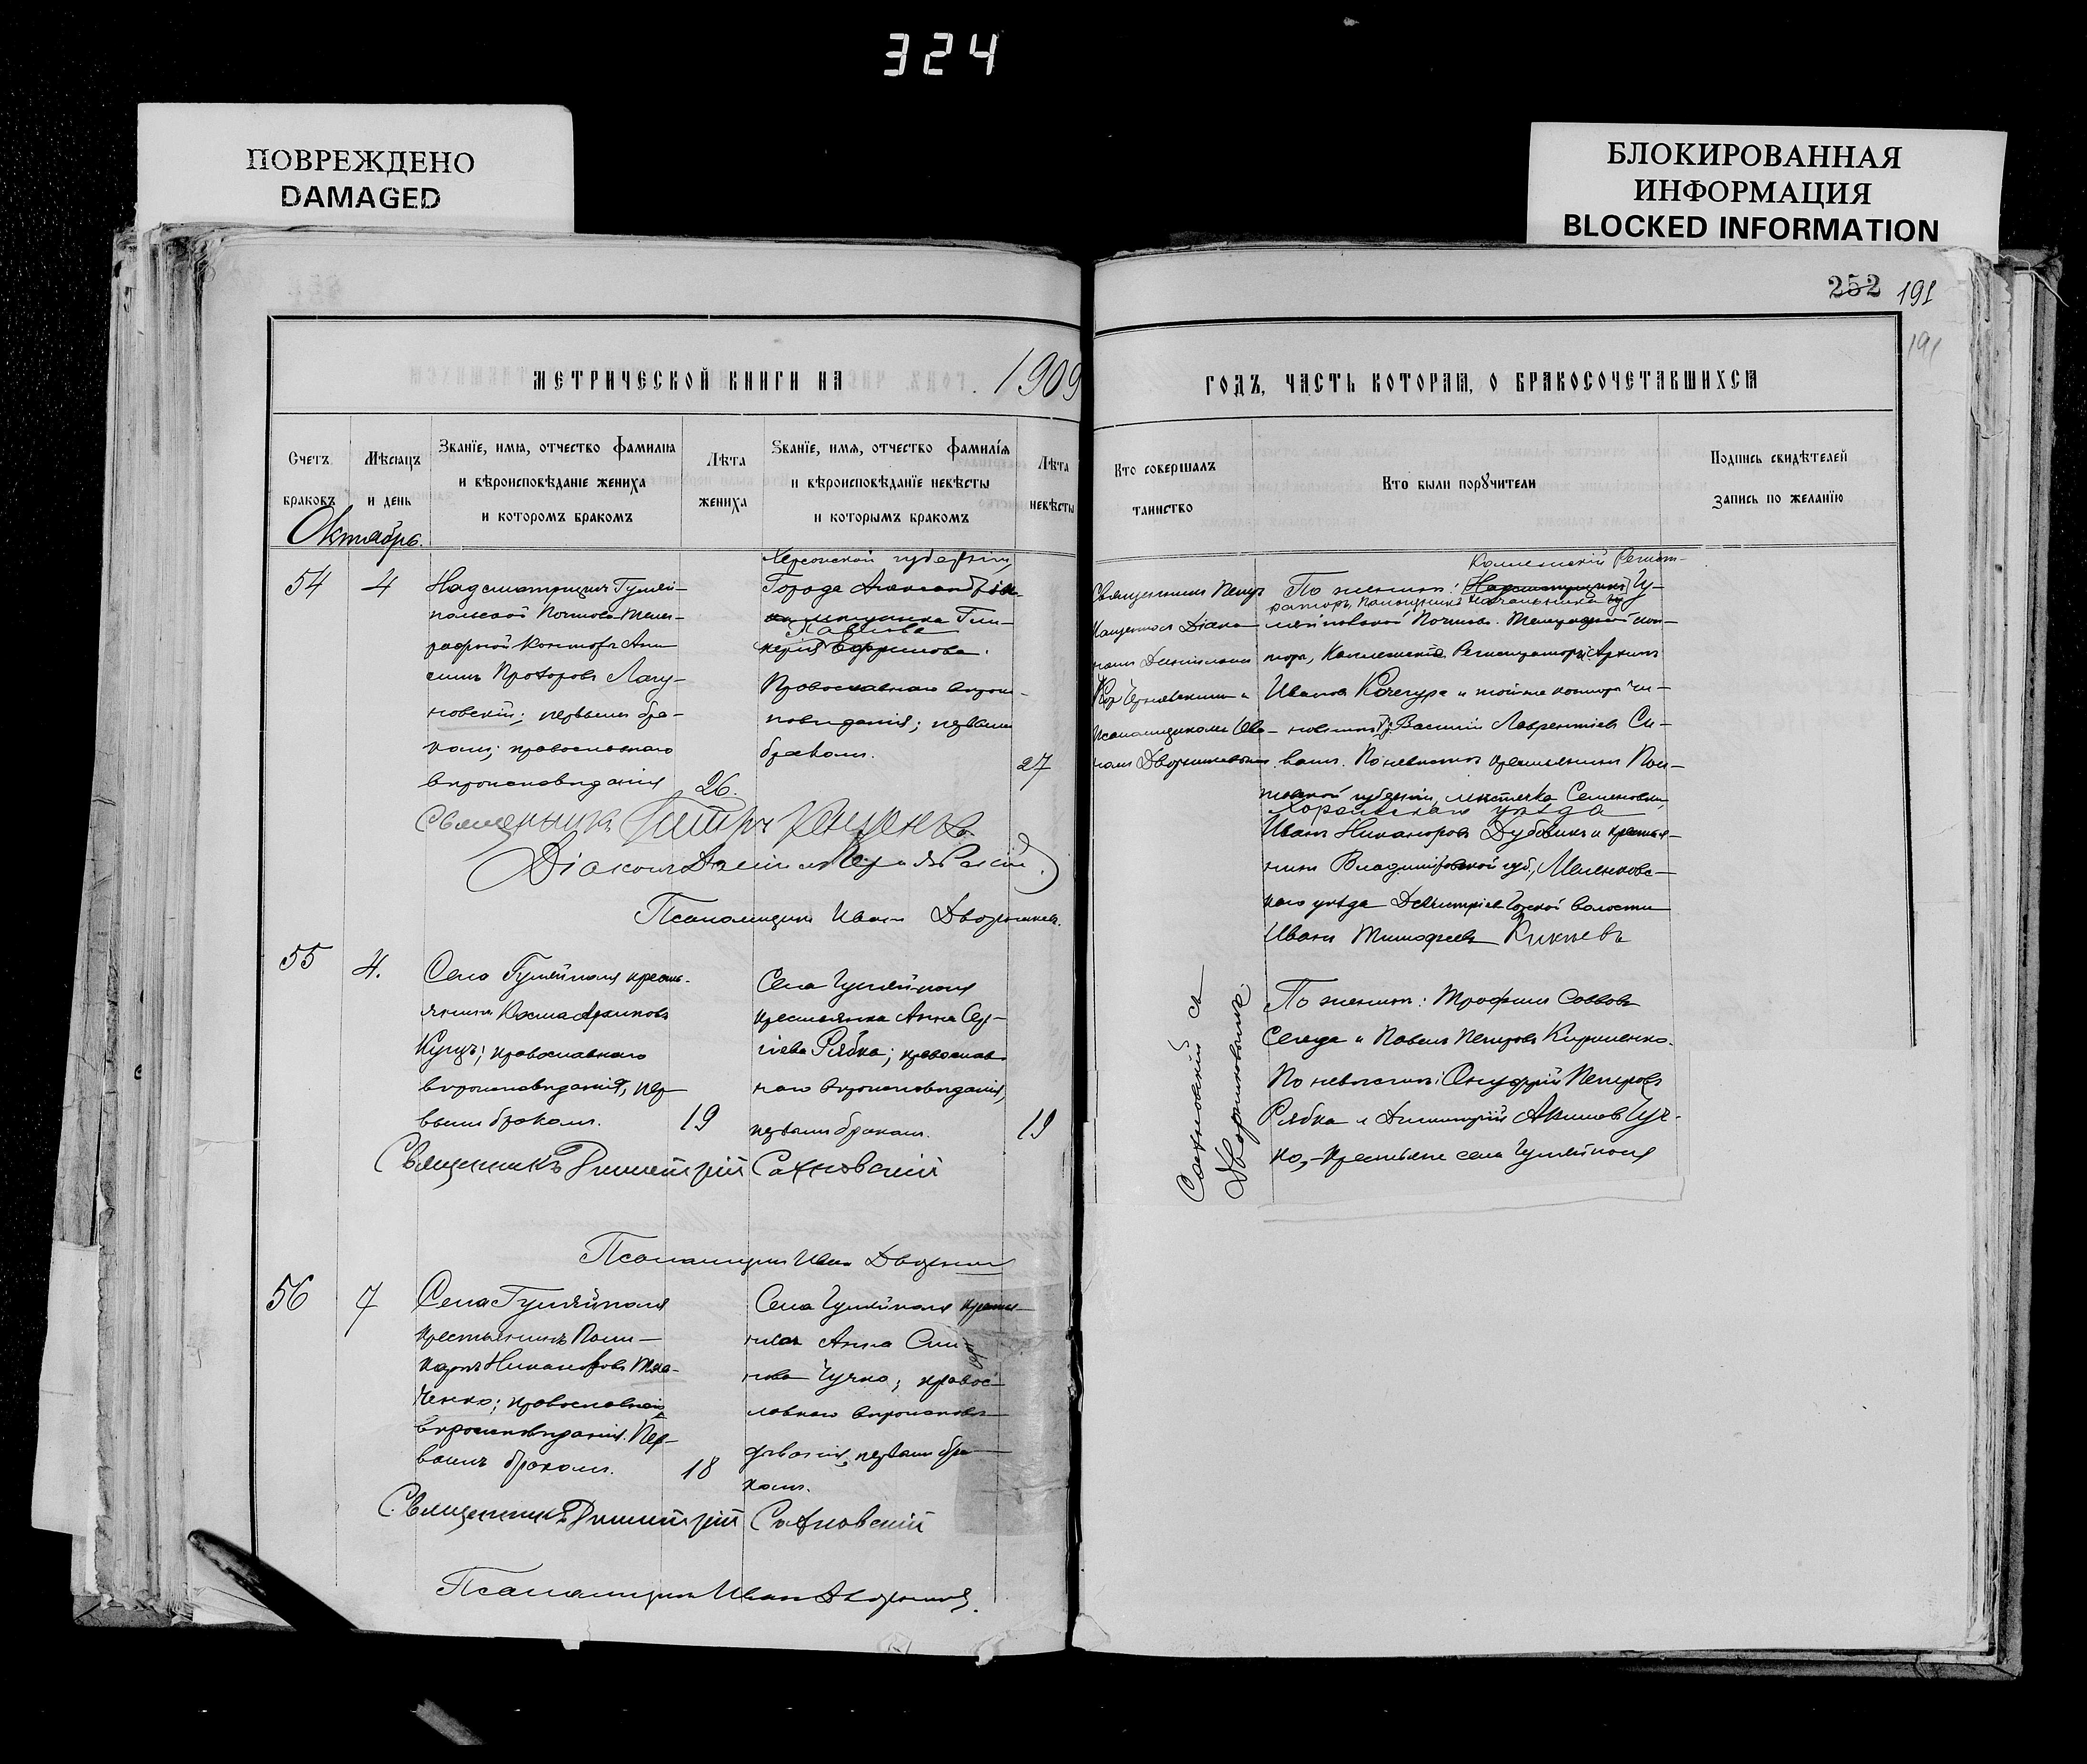 324
ПОВРЕЖДЕНО
DAMAGED
БЛОКИРОВАННАЯ
ИНФОРМАЦИЯ
BLOCKED INFORMATION
252 191
191
МЕТРИЧЕСКОЙ КНИГИ НА 1909
ГОДЪ, ЧАСТЬ ВТОРАЯ, О БРАКОСОЧЕТАВШИХСЯ
Счетъ браковъ
Мѣсяцъ и день
Званїе, имя, отчество фамилїя
и вѣроисповѣданїе жениха
и которомъ бракомъ
Лѣта жениха
Званїе, имя, отчество фамилїя
и вѣроисповѣданїе невѣсты
и которымъ бракомъ
Лѣта невѣсты
Кто совершалъ таинство
Кто были поручители
Подпись свидѣтелей
запись по желанїю
Октябрь.
54
4
Надсмотрщикъ Гуляй-
польской Почтово-Теле-
графной Конторы
новскій; первымъ бра-
комъ; православнаго
вѣроисповѣданія
26.
Херсонской губерніи,
Города
Павлова
Православнаго вѣроис-
повѣданія; первымъ
бракомъ.
27
Священникъ Петръ
Діакономъ Даніиломъ
Псаломщикомъ Ива-
номъ Дворниковымъ
По женихѣ: Коллежскій Регист-
раторъ, Помощникъ Начальника Гу-
ляйпольской Почтово-Телеграфной кон-
торы, Коллежскій Регистраторъ
Ивановъ Кочегура и той же конторы чи-
новникъ Василій Лаврентіевъ Си-
вашъ. По невѣстѣ крестьянинъ Пол-
тавской губерніи, мѣстечка Семеновки,
Хорольскаго уѣзда
Иванъ Никаноровъ Дубликъ и крестья-
нинъ Владимірской губ., Меленковс-
каго уѣзда Дмитріевъ Горской волости
Иванъ Тимофеевъ
Священникъ Петръ
Діаконъ Даніилъ
Псаломщикъ Иванъ Дворниковъ.
55
4.
Села Гуляйполя кресть-
янинъ Косма Архиповъ
Куцъ; православнаго
вѣроисповѣданія, пер-
вымъ бракомъ.
19
Села Гуляйполя
крестьянка Анна Сер-
гіева Рябка; православ-
наго вѣроисповѣданія,
первымъ бракомъ.
19
Сахновскій съ
Дворниковымъ.
По женихѣ: Трофимъ Саввовъ
Середа и Павелъ Петровъ Кириленко.
По невѣстѣ: Онуфрій Петровъ
Рябка и Димитрій Акимовъ Чуч-
ко, - крестьяне села Гуляйполя
Священникъ Димитрій Сахновскій
Псаломщикъ Иванъ Дворниковъ
56
7
Села Гуляйполя
крестьянинъ Поли-
карпъ Никаноровъ Тка-
ченко; православнаго
вѣроисповѣданія. Пер-
вымъ бракомъ.
18
Села Гуляйполя кресть-
янка Анна
нова Чучко; правос-
лавнаго вѣроисповѣ-
данія, первымъ бра-
комъ.
Священникъ Димитрій Сахновскій
Псаломщикъ Иванъ Дворниковъ.